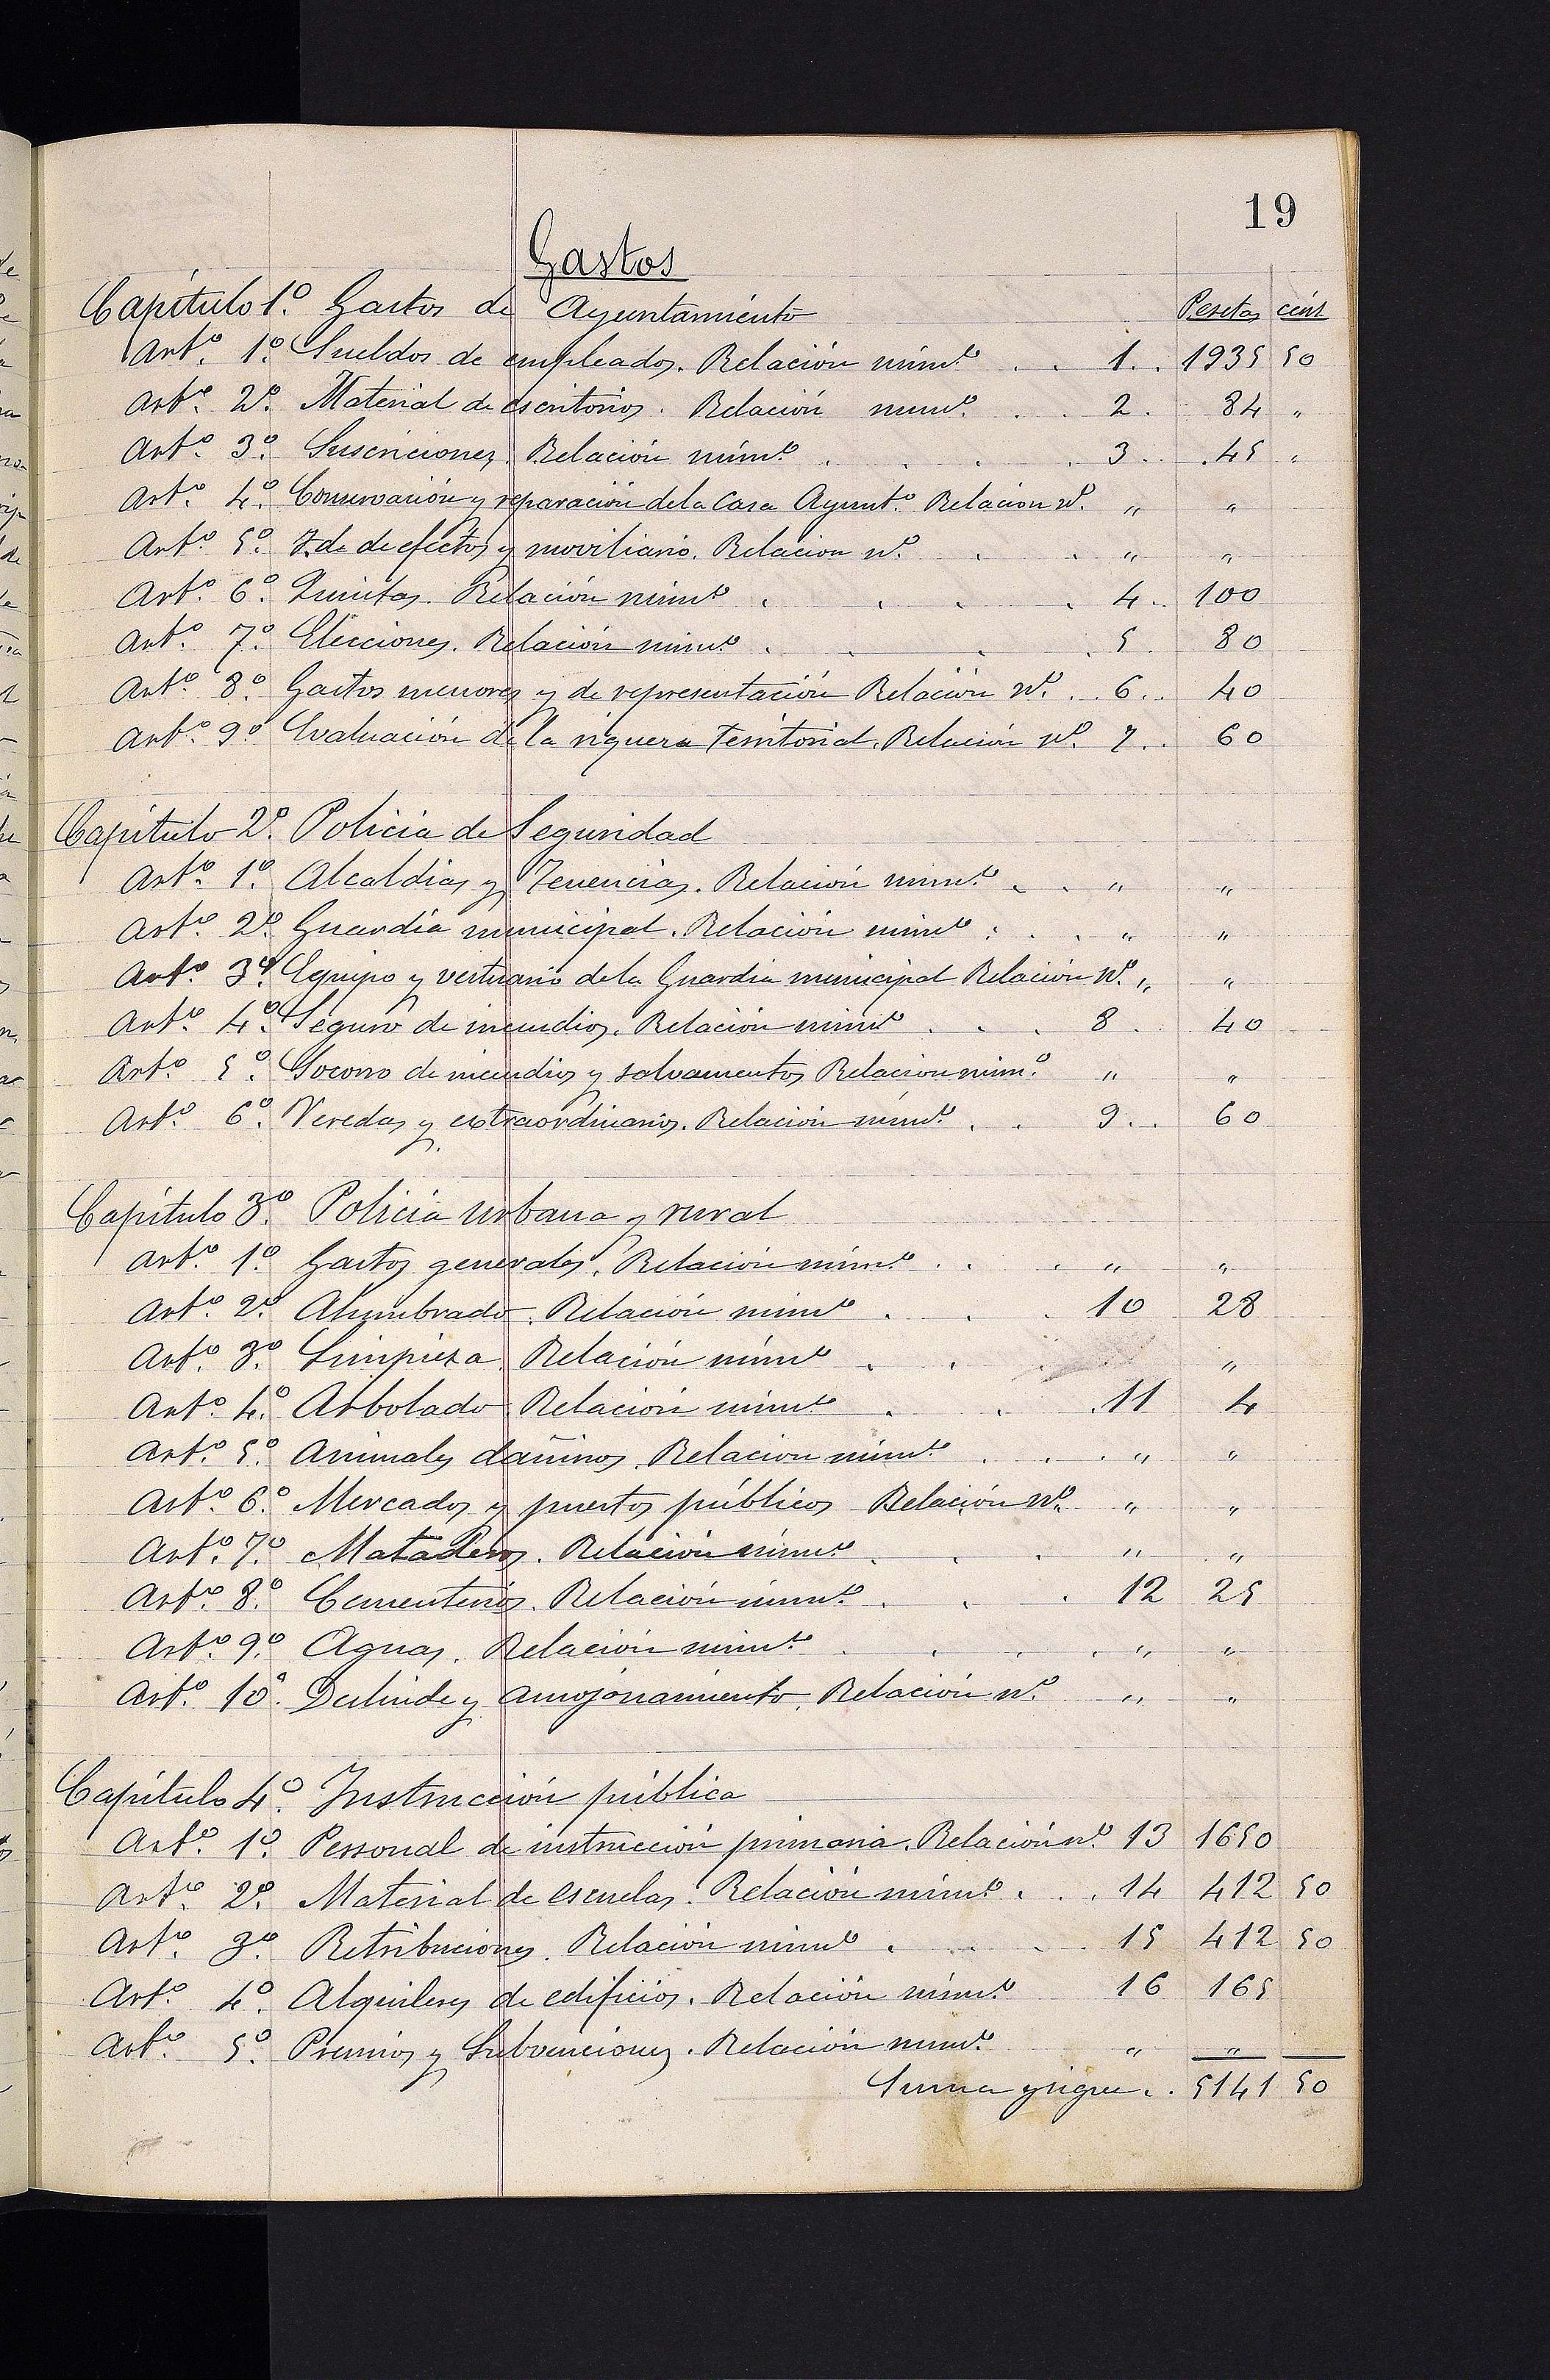 19
Gastos
Capítulo 1º. Gastos de Ayuntamiento Pesetas cént
Artº. 1º. Sueldos de empleados. Relación númº . . 1. . 1935 50
Artº. 2º. Material de escritorios. Relación numº. . . 2. 84 "
Artº. 3º. Suscriciones. Relación númº . . . . 3. . . 45 "
Artº. 4º. Conservación y reparación de la Casa Ayuntº. Relacion nº. " "
Artº. 5º. Id. de efectos y moviliario. Relacion nº. . . " "
Artº. 6º. Quintas. Relación númº . . . . 4. . 100
Artº. 7º. Elecciones. Relación númº . . . . 5. 80
Artº. 8º. Gastos menores y de representación Relación nº. . 6. . 40
Artº. 9º. Evaluación de la riquera territorial. Relación nº. 7. . 60
Capítulo 2º. Policia de Seguridad
Artº. 1º. Alcaldias y Tenencias. Relación númº . . " "
Artº. 2º. Guardia municipal. Relación númº . . . " "
Artº. 3º. Equipo y vertuario de la Guardia municipal Relación nº. " "
Artº. 4º. Seguro de incendios. Relación númº . . . 8. 40
Artº. 5º. Socorro de incendios y salvamentos Relacion númº. " "
Artº. 6º. Veredas y extraordinarios. Relación númº. . . 9. . 60
Capítulo 3º. Policia urbana y rural
Artº. 1º. Gastos generales. Relación númº . . . " "
Artº. 2º. Alumbrado. Relación númº . . . 10 28
Artº. 3º. Limpieza. Relación númº . . . "
Artº. 4º. Arbolado. Relación númº . . . 11 4
Artº. 5º. Animales dañinos. Relación númº . . . " "
Artº. 6º. Mercados y puestos públicos Relación nº. " "
Artº. 7º. Mataderos. Relación númº . . . " "
Artº. 8º. Cementerios. Relación númº . . . 12 25
Artº. 9º. Aguas. Relación númº . . . . " "
Artº. 10º. Deslinde y amojonamiento. Relación nº. " "
Capítulo 4º. Instrucción pública
Artº. 1º. Personal de instrucción primaria. Relación nº. 13 1650
Artº. 2º. Material de escuelas. Relación númº . . . 14 412 50
Artº. 3º. Retribuciones. Relación númº . . . 15 412 50
Artº. 4º. Alquileres de edificios. Relación númº 16 165
Artº. 5º. Premios y Subvenciones. Relación númº. " "
Suma y sigue . . 5141 50